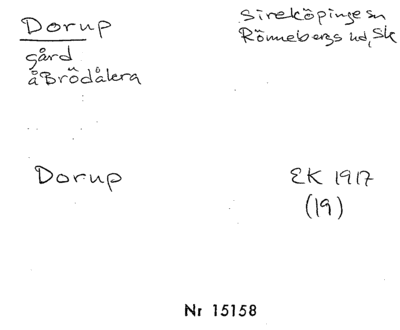 Dorup
gård
å Brödåkra
Sireköpinge sn
Rönnebergs hd, Sk
Dorup
EK 1917
(19)
Nr 15158